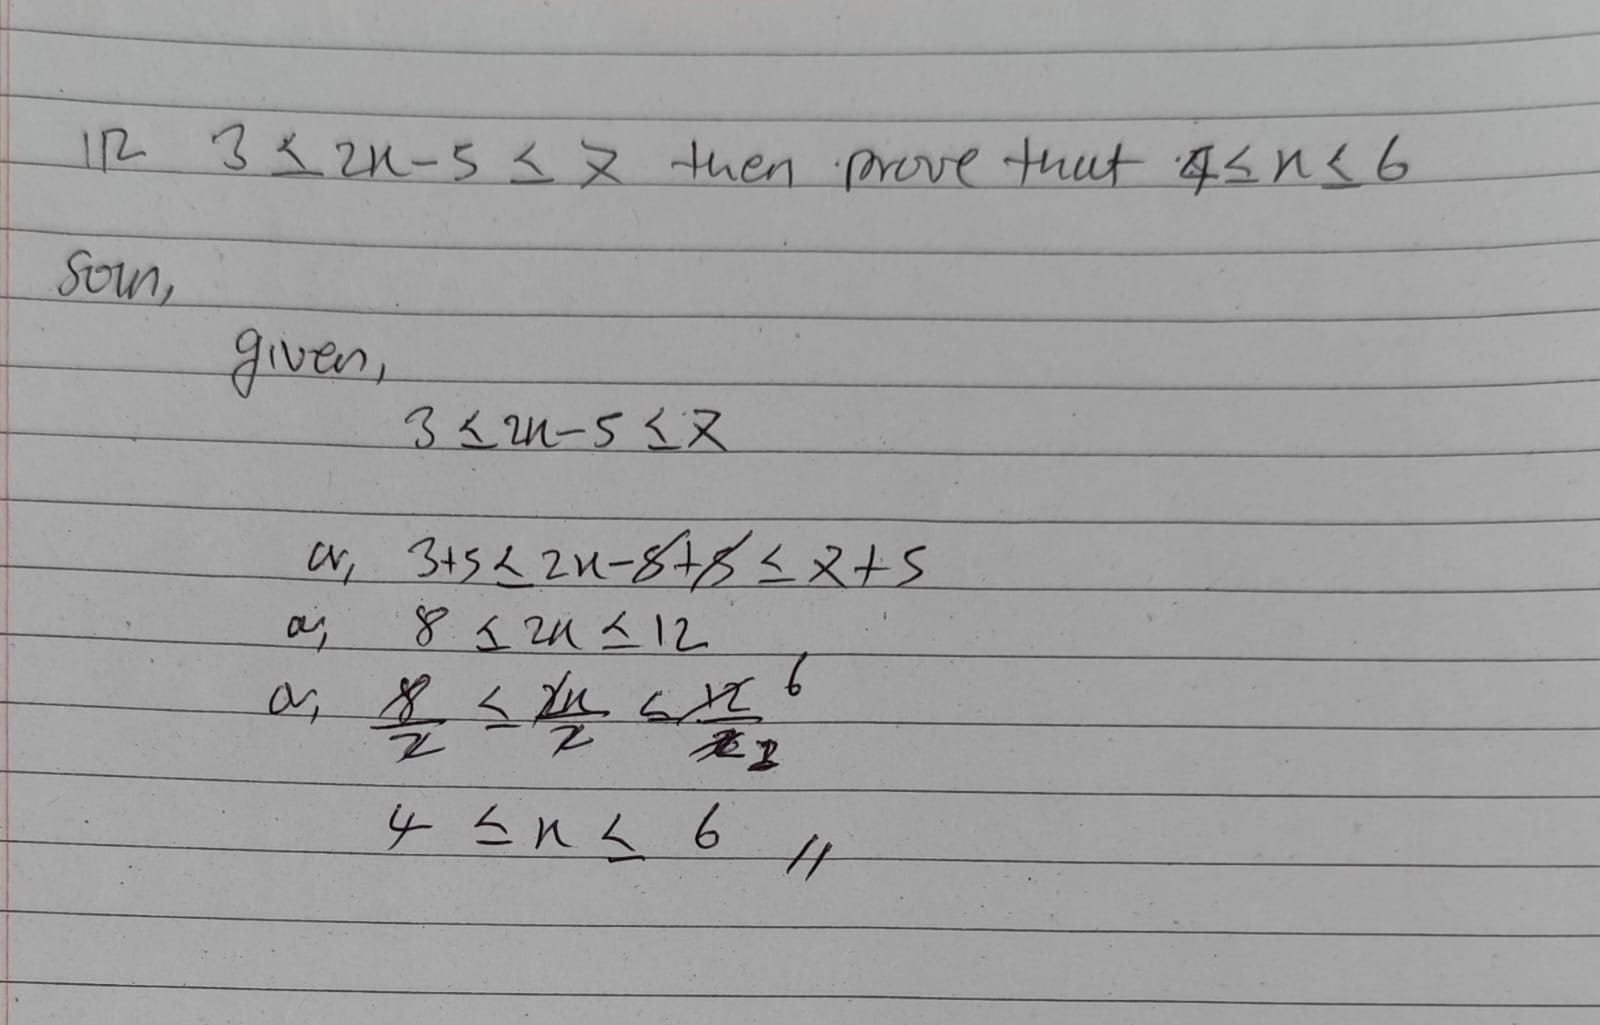 If 3 ≤ 2x-5 ≤ 7 then prove that 4 ≤ x ≤ 6
Soln,
given,
3 ≤ 2x-5 ≤ 7
or, 3+5 ≤ 2x-5+5 ≤ 7+5
or, 8 ≤ 2x ≤ 12
or, 8/2 ≤ 2x/2 ≤ 12/2 6 1
4 ≤ x ≤ 6 //